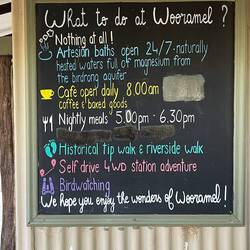 What to do at Wooramel ?
Nothing at all !
Artesian baths open 24/7 - naturally
heated waters full of magnesium from
the birdrong aquifer
Cafe open daily 8.00am
coffee & baked goods
Nightly meals 5.00pm - 6.30pm
Historical tip walk & riverside walk
Self drive 4WD station adventure
Birdwatching
We hope you enjoy the wonders of Wooramel !